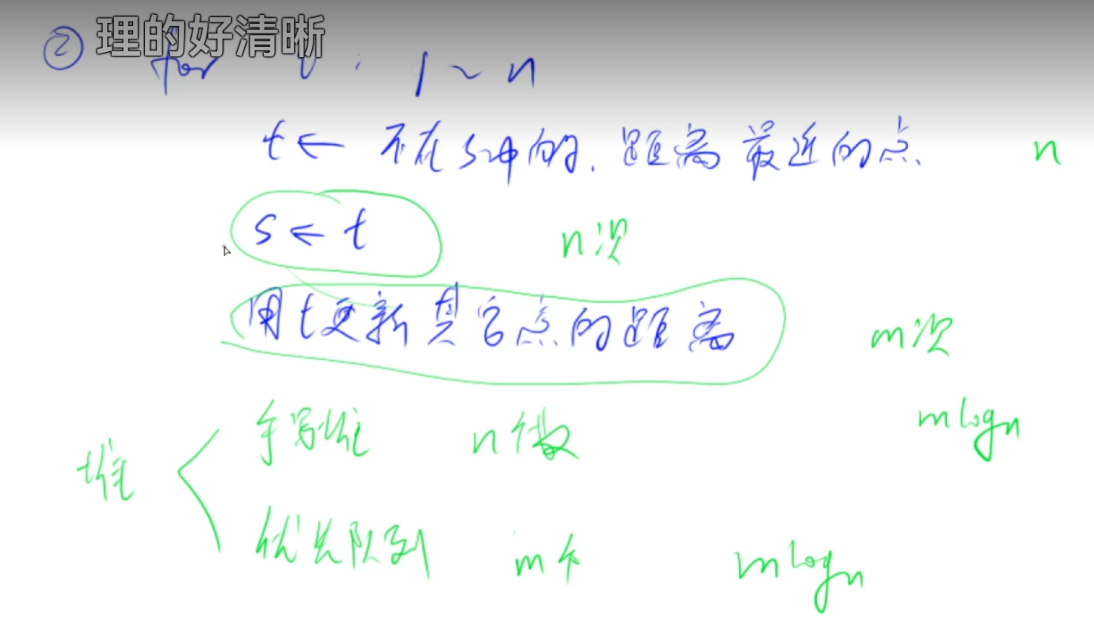 理的好清晰
② for i : 1 ~ n
t ← 不在S中的,距离最近的点. n
S ← t n次
用t更新其它点的距离 m次
堆 手写堆 n个数 mlogn
优先队列 m个 mlogn